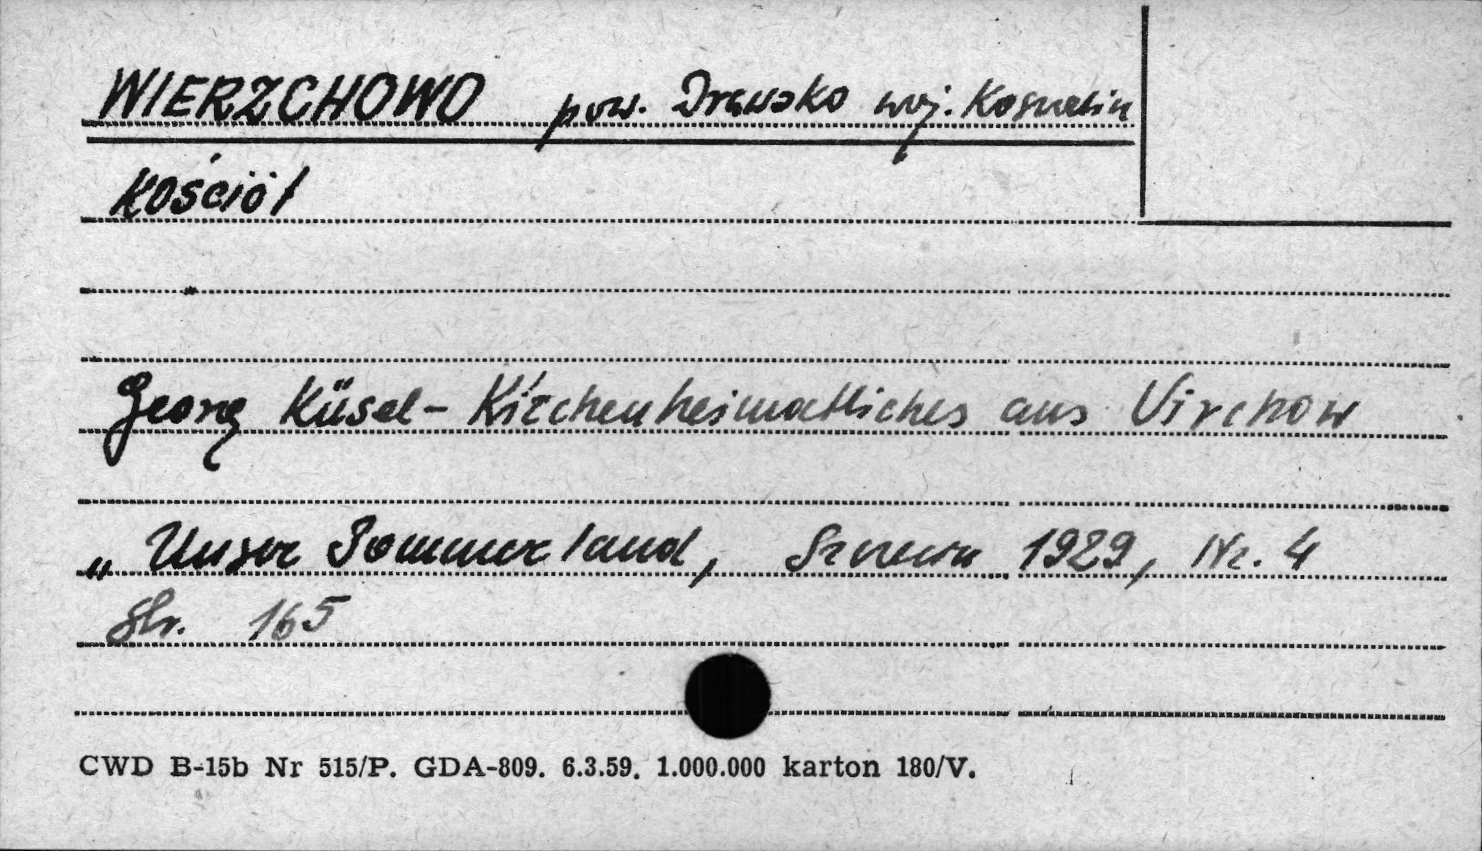 WIERZCHOWO pow. Drawsko woj. Koszalin
Kościół
Georg Küsel - Kirchenheimatliches aus Virchow
„Unser Pommerland, Szczecin 1929, Nr. 4
Str. 165
CWD B-15b Nr 515/P. GDA-809. 6.3.59. 1.000.000 karton 180/V.